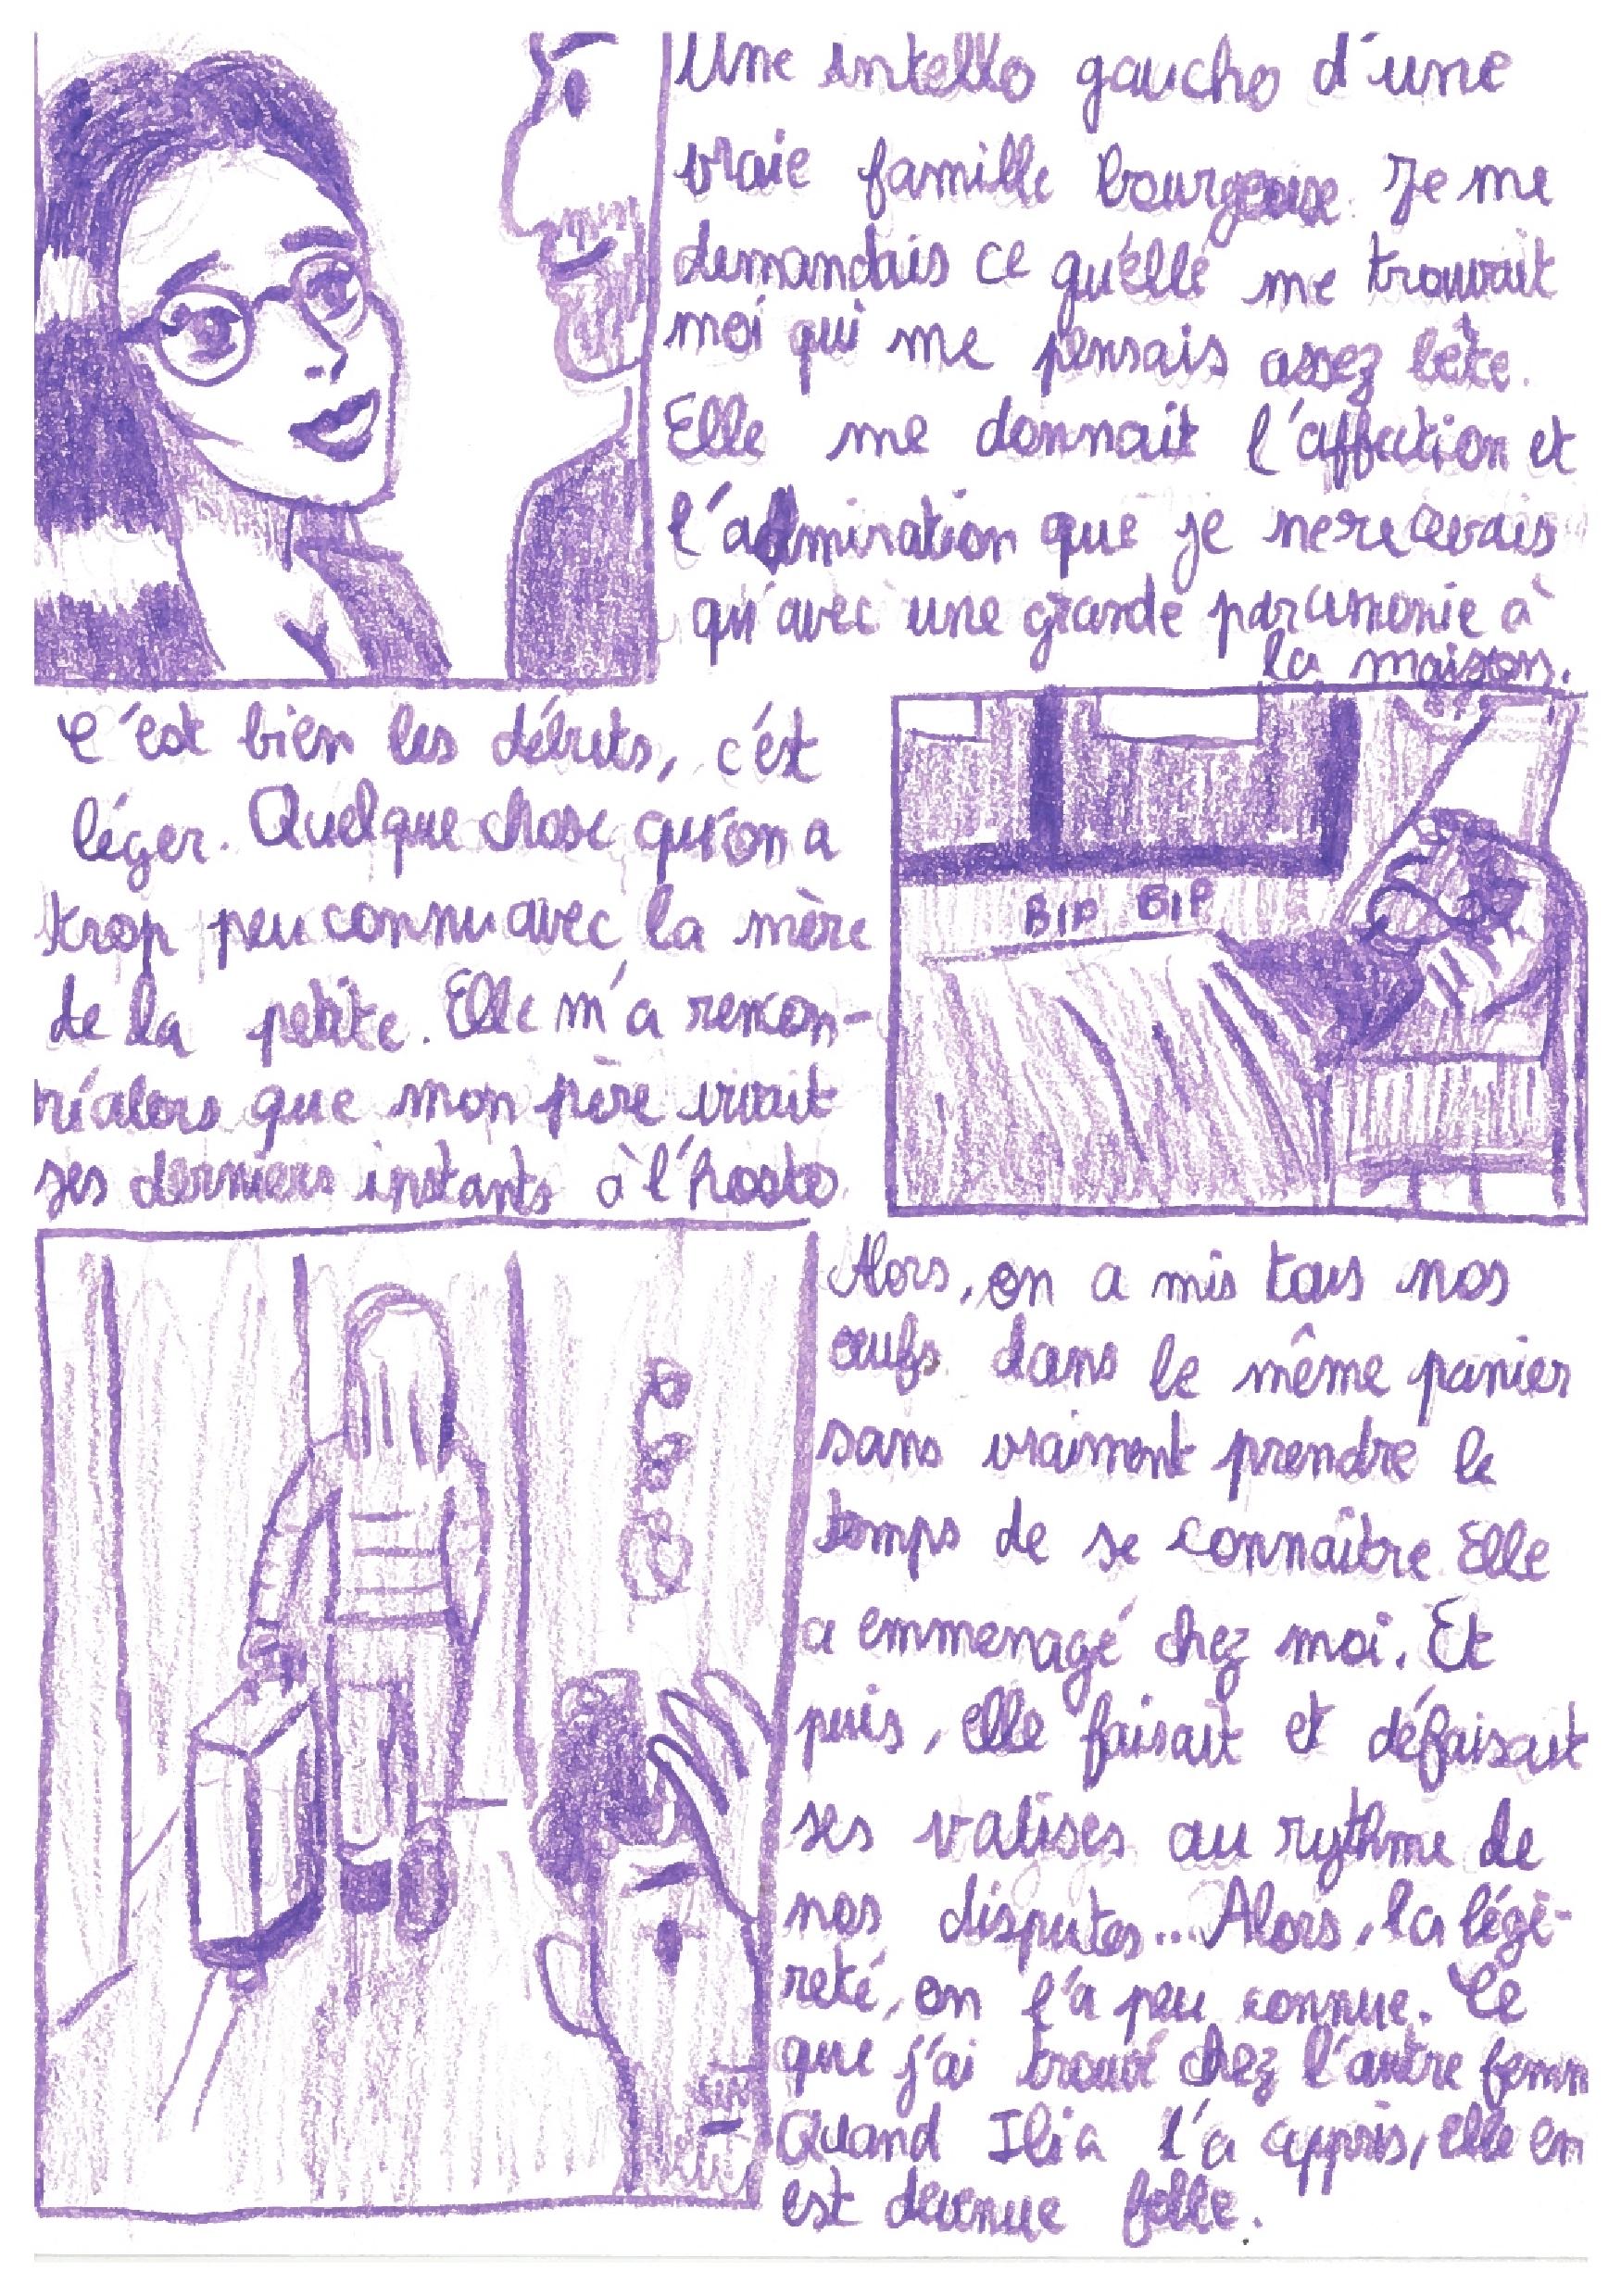 Une intello gaucho d'une
vraie famille bourgeoise. Je me
demandais ce qu'elle me trouvait
moi qui me pensais assez bête.
Elle me donnait l'affection et
l'admiration que je ne recevais
qu'avec une grande parcimonie à
la maison.
C'est bien les débuts, c'est
léger. Quelque chose qu'on a
trop peu connu avec la mère
de la petite. Elle m'a rencon-
tré alors que mon père vivait
ses derniers instants à l'hosto.
BIP BIP
Alors, on a mis tous nos
œufs dans le même panier
sans vraiment prendre le
temps de se connaître. Elle
a emmenagé chez moi. Et
puis, elle faisait et défaisait
ses valises au rythme de
nos disputes... Alors, la légè-
reté, on l'a peu connue. Ce
que j'ai trouvé chez l'autre femm
Quand Ilia l'a appris, elle en
est devenue folle.